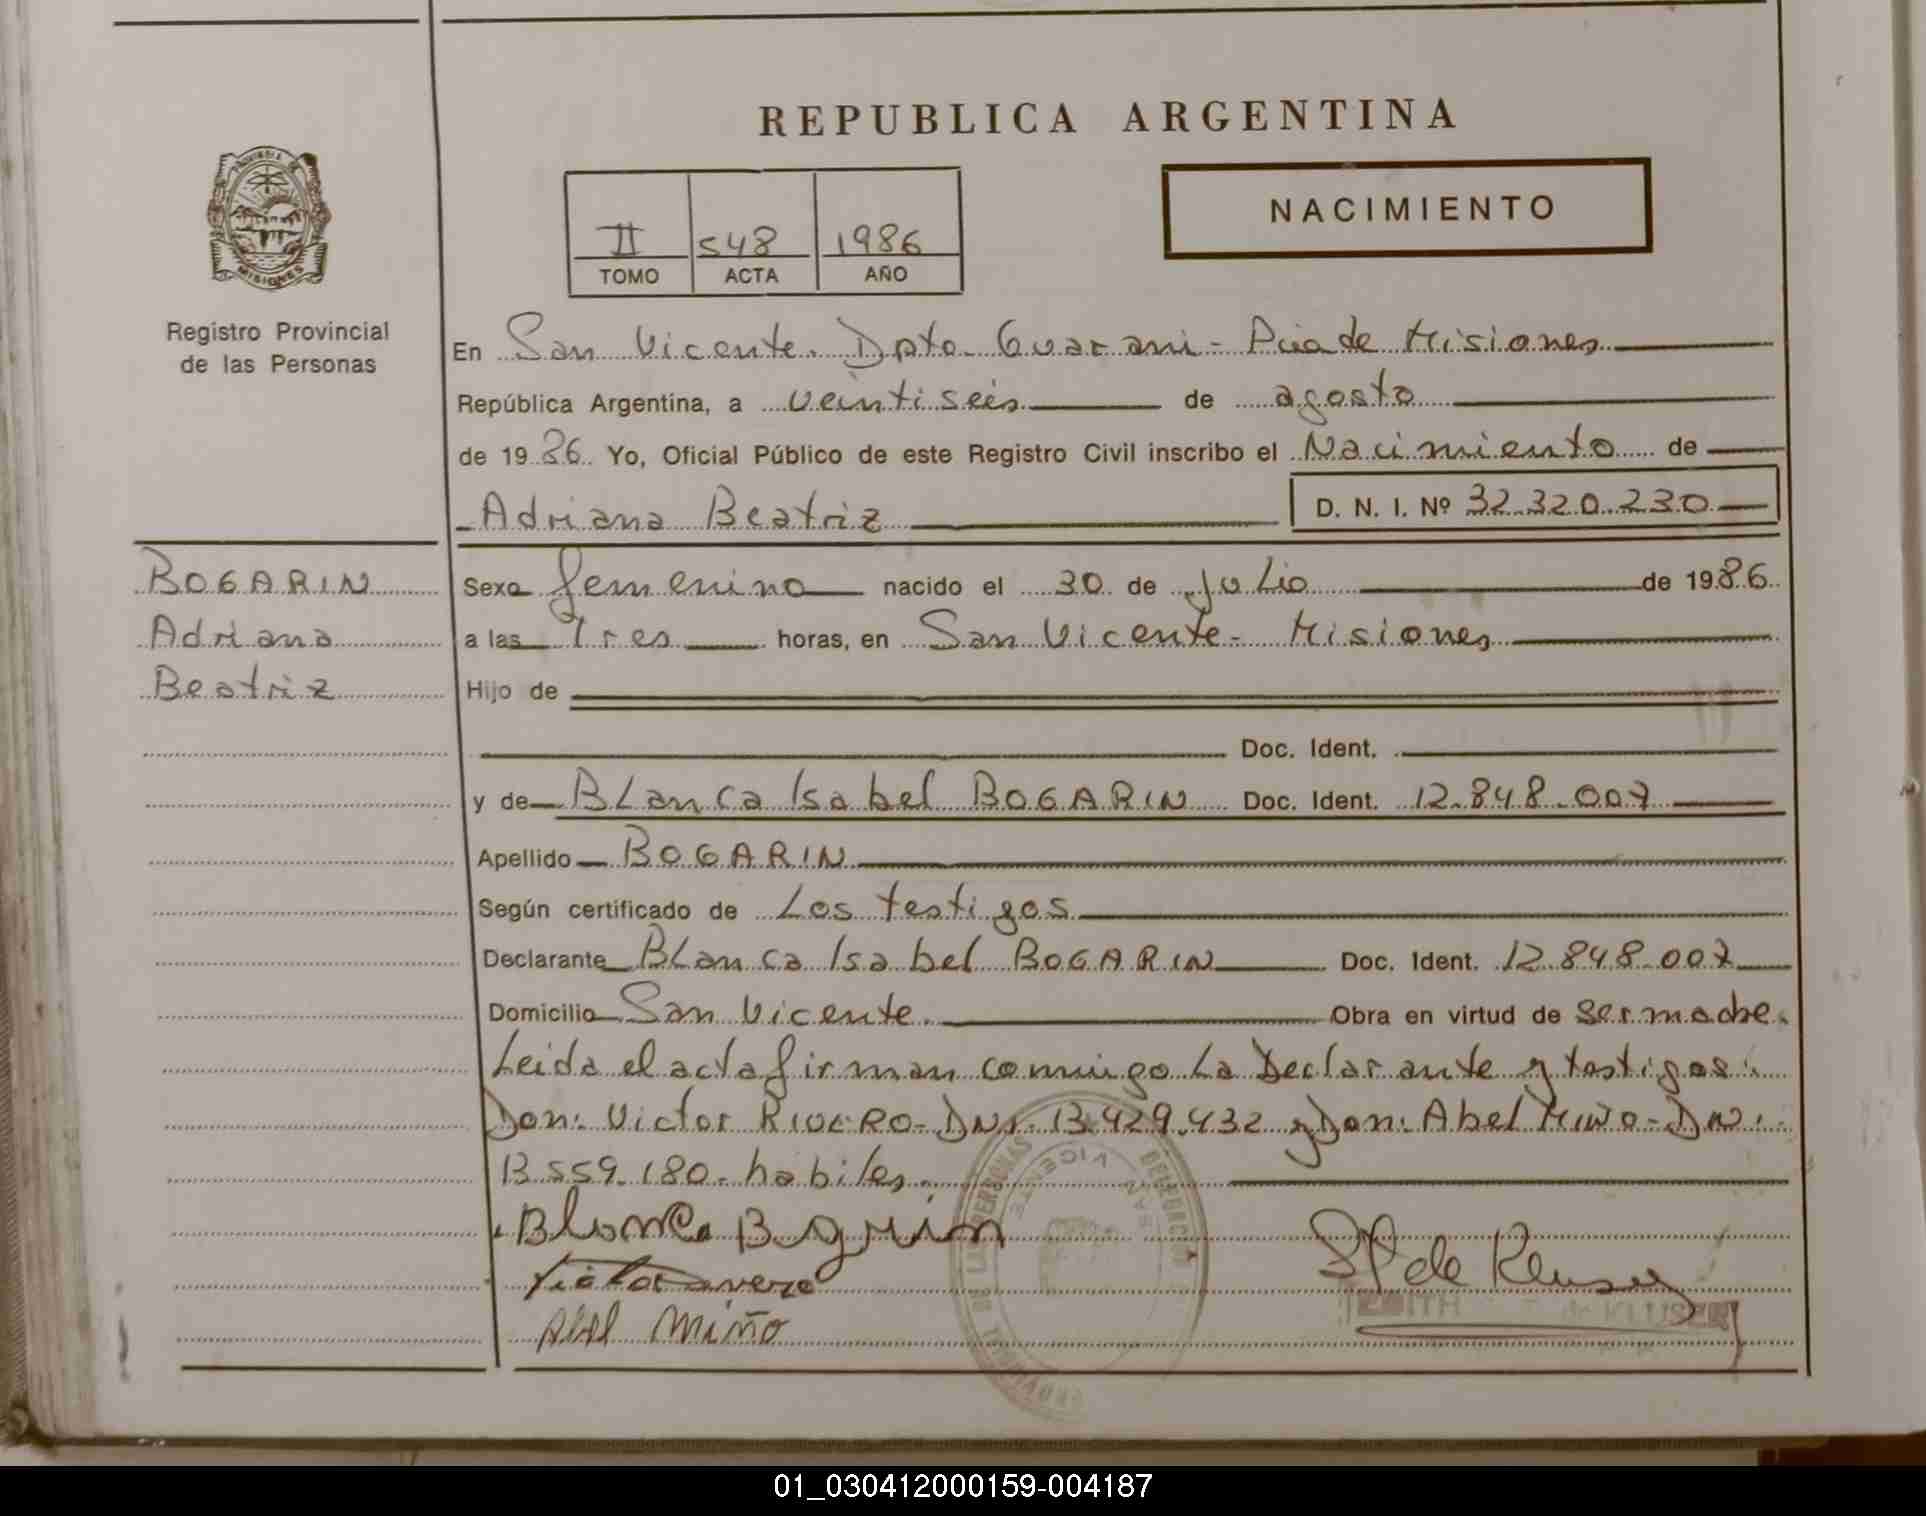 REPUBLICA ARGENTINA
PROVINCIA DE
MISIONES
Registro Provincial
de las Personas
II 548 1986
TOMO ACTA AÑO
NACIMIENTO
En San Vicente. Dpto. Guarani - Pcia de Misiones
República Argentina, a veintiséis de agosto
de 1986 Yo, Oficial Público de este Registro Civil inscribo el Nacimiento de
Adriana Beatriz D. N. I. Nº 32.320.230
BOGARIN
Adriana
Beatriz
Sexo femenino nacido el 30 de Julio de 1986
a las Tres horas, en San Vicente - Misiones
Hijo de
Doc. Ident.
y de Blanca Isabel BOGARIN Doc. Ident. 12.848.007
Apellido BOGARIN
Según certificado de Los testigos
Declarante Blanca Isabel BOGARIN Doc. Ident. 12.848.007
Domicilio San Vicente. Obra en virtud de ser madre.
Leida el acta firman conmigo La Declarante y testigos:
Don: Victor RIVERO - DNI. 13.429.432 y Don: Abel Miño - DNI.
13.559.180 - habiles.
Blanca Bogarin
Abel Miño
de Kluser
EDITH de KLUSER
DELEGACION SAN VICENTE
DE LAS PERSONAS
01_030412000159-004187